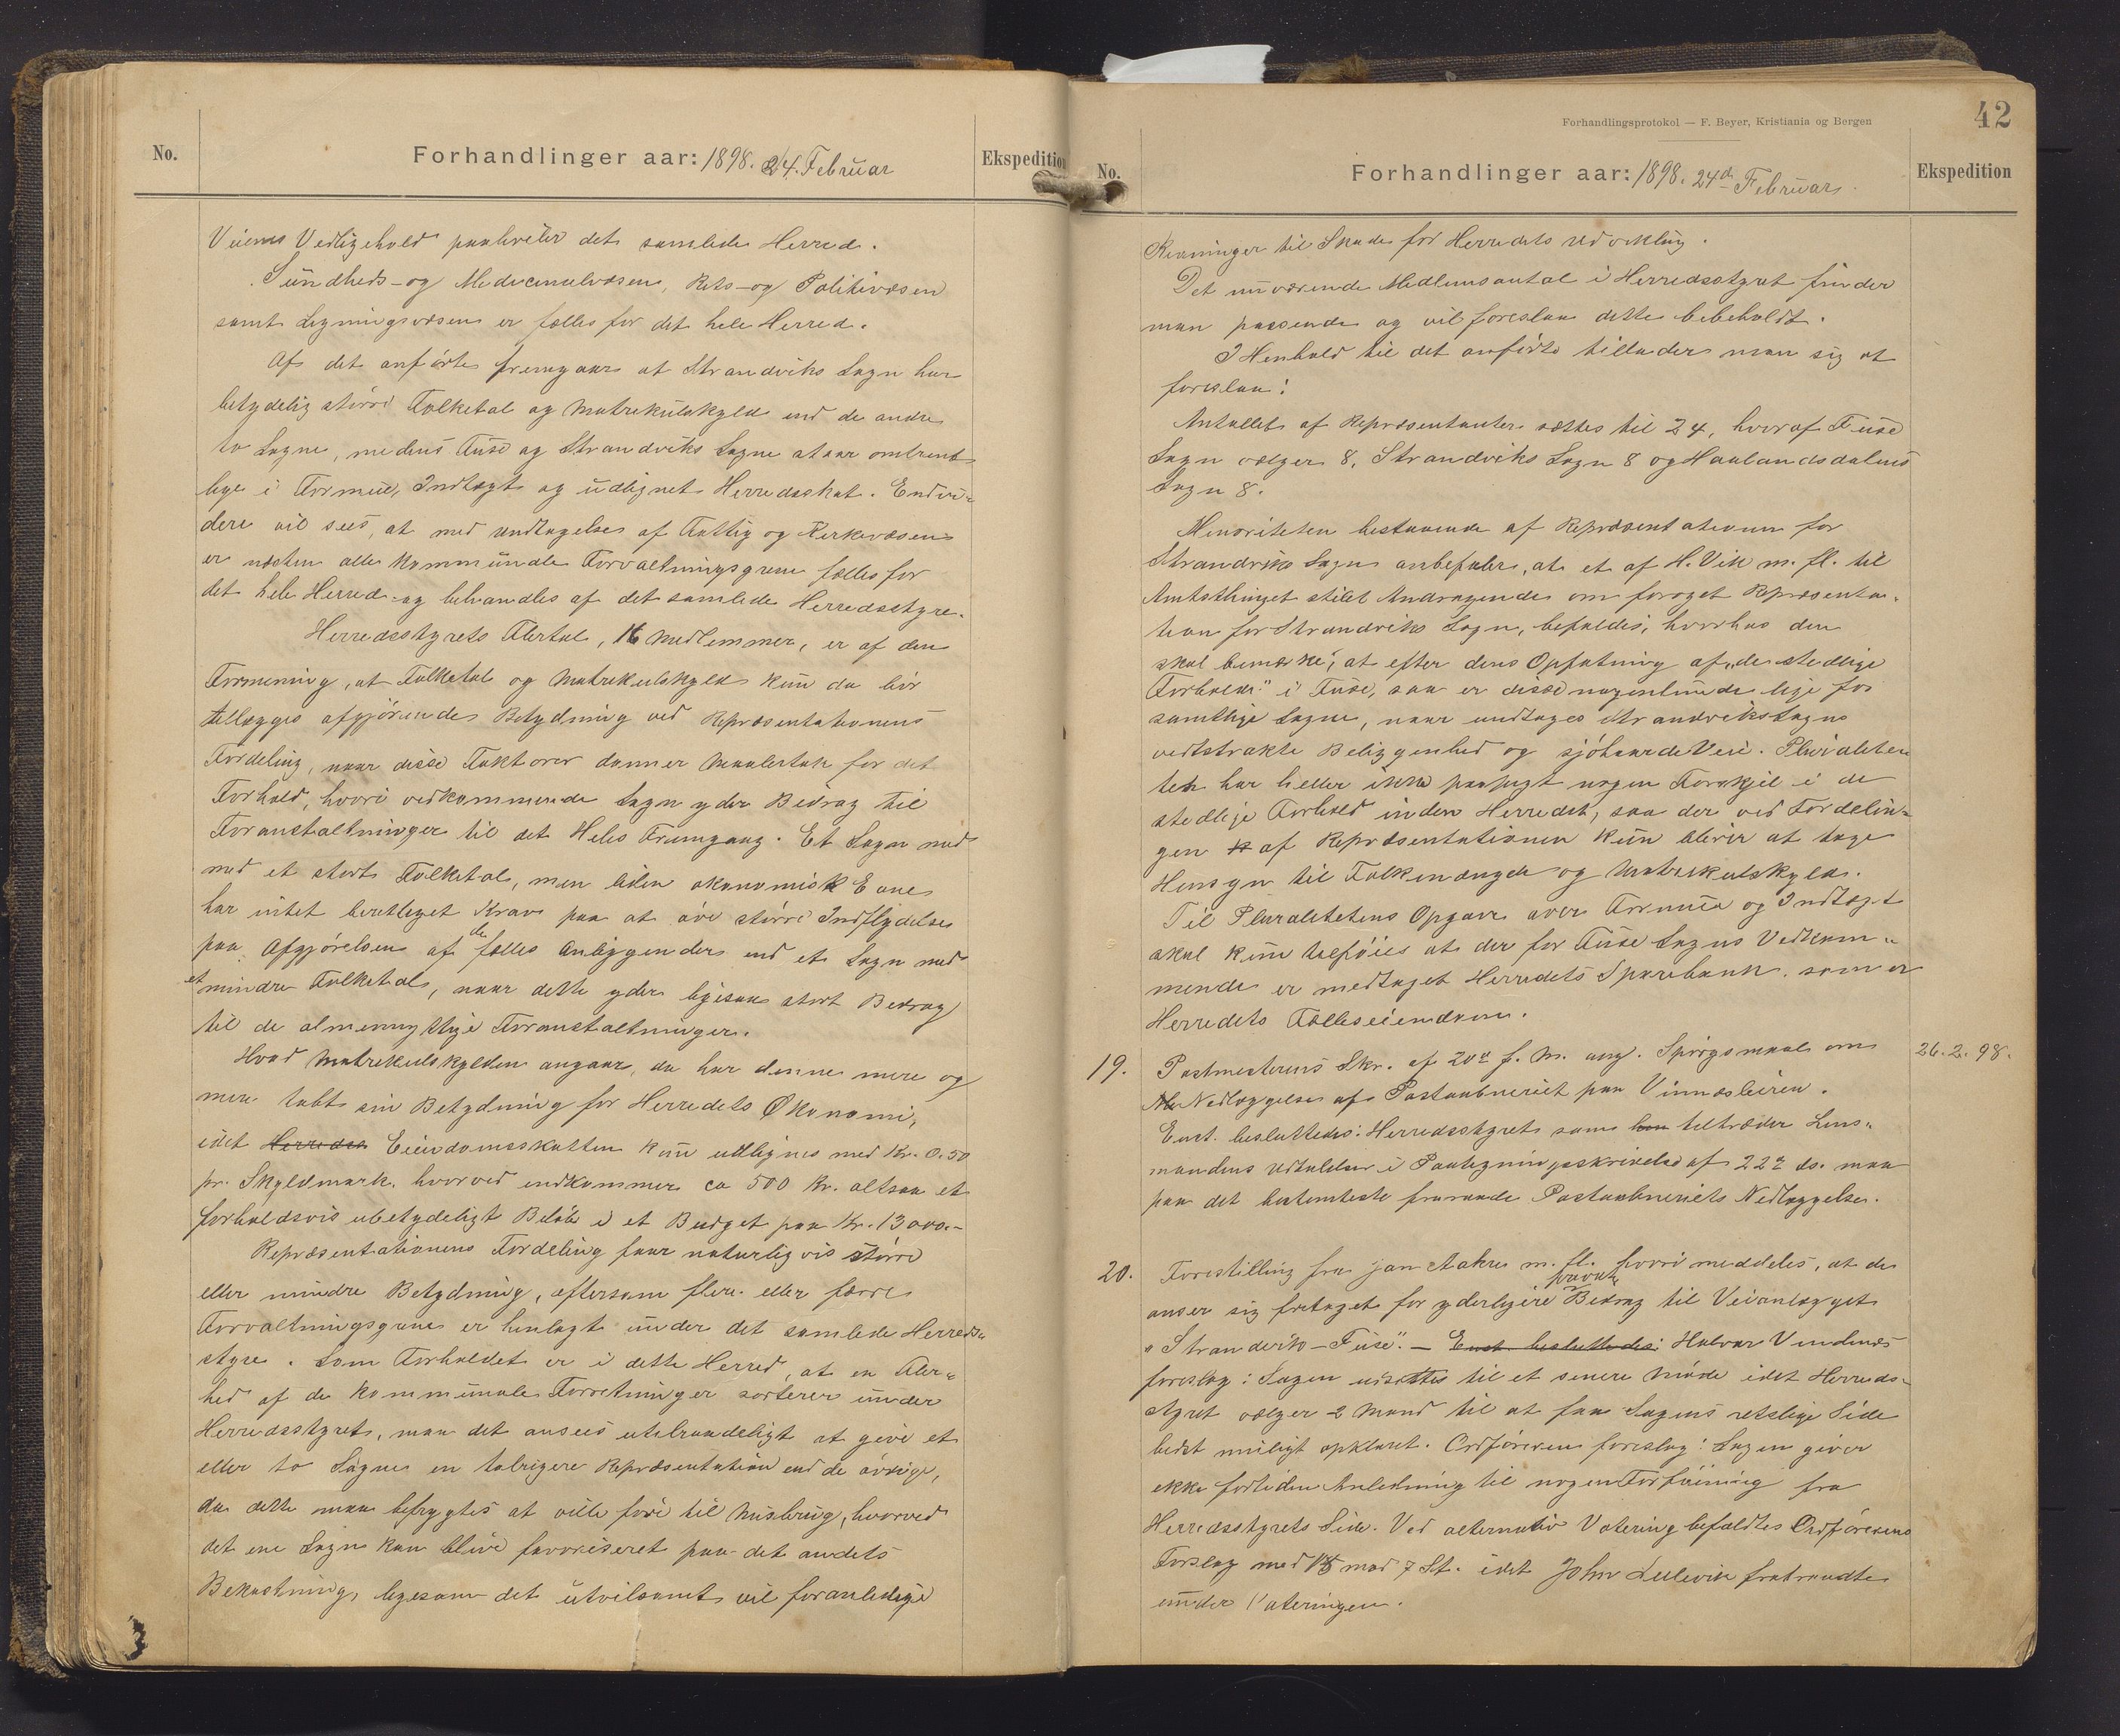 No.
Forhandlinger aar: 1898. 24. Februar
Ekspedition
Veienes Vedligehold paahviler det samlede Herred.
Sundheds- og Medicinalvæsen, Rets- og Politivæsen
samt Ligningsvæsen er fælles for det hele Herred.
Af det anførte fremgaar at Strandviks Sogn har
betydelig større Folketal og Matrikulskyld end de andre
to Sogne, medens Fuse og Strandviks Sogne staar omtrent
lige i Formue, Indtægt og udlignet Herredsskat. Endvi-
dere vil sees, at med undtagelse af Fattig og Kirkevæsen
er næsten alle kommunale Forvaltningsgrene fælles for
det hele Herred og behandles af det samlede Herredsstyre.
Herredsstyrets Flertal, 16 Medlemmer, er af den
Formening, at Folketal og Matrikulskyld kun da bør
tillægges afgjørende Betydning ved Repræsentationens
Fordeling, naar disse Faktorer danner Maalestok for det
Forhold, hvori vedkommende Sogn yder Bidrag til
Foranstaltninger til det Heles Fremgang. Et Sogn med
med et stort Folketal, men liden økonomisk Evne
har intet berettiget Krav paa at øve større Indflydelse
paa Afgjørelsen af de fælles Anliggender end et Sogn med
et mindre Folketal, naar dette yder ligesaa stort Bidrag
til de almennyttige Foranstaltninger.
Hvad Matrikulskylden angaar, da har denne mere og
mere tabt sin Betydning for Herredets Økonomi,
idet Herredsm Eiendomsskatten kun udlignes med Kr. 0.50
pr. Skyldmark, hvorved indkommer ca 500 Kr. altsaa et
forholdsvis ubetydeligt Beløb i et Budget paa Kr. 13000.-
Repræsentationens Fordeling faar naturligvis større
eller mindre Betydning, eftersom flere eller færre
Forvaltningsgrene er henlagt under det samlede Herreds-
styre. Som Forholdet er i dette Herred, at en Fler-
hed af de kommunale Forretninger sorterer under
Herredsstyret, maa det ansees utilraadeligt at give et
eller to Sogne en talrigere Repræsentation end de øvrige,
da dette maa befrygtes at ville føre til Misbrug, hvorved
det ene Sogn kan blive favoriseret paa det andets
Bekostning, ligesom det utvilsomt vil foranledige
3
Forhandlingsprotokol — F. Beyer, Kristiania og Bergen
42
No.
Forhandlinger aar: 1898. 24de Februar.
Ekspedition
Rivninger til Skade for Herredets Udvikling.
Det nuværende Medlemsantal i Herredsstyret finder
man passende og vil foreslaa dette bibeholdt.
I Henhold til det anførte tillader man sig at
foreslaa:
Antallet af Repræsentanter sættes til 24, hvoraf Fuse
Sogn vælger 8, Strandviks Sogn 8 og Haalandsdalens
Sogn 8.
Minoriteten bestaaende af Repræsentationen for
Strandviks Sogn anbefaler, at et af H. Vik m. fl. til
Amtsthinget stilet Andragende om forøget Repræsenta-
tion for Strandviks Sogn, befales, hvorhos den
skal bemærke, at efter dens Opfatning af „de stedlige
Forhold" i Fuse, saa er disse nogenlunde lige for
samtlige Sogne, naar undtages Strandviks Sogns
vidtstrakte Beliggenhed og sjøhaarde Veie. Pluralite
ten har heller ikke paapegt nogen Forskjel i de
stedlige Forhold inden Herredet, saa der ved Fordelin-
gen af Repræsentationen kun bliver at tage
Hensyn til Folkemængde og Matrikulskyld.
Til Pluralitetens Opgave over Formue og Indtægt
skal kun tilføies at der for Fuse Sogns Vedkom-
mende er medtaget Herredets Sparebank, som er
Herredets Fælleseiendom.
19. Postmesterens Skr. af 20de f. M. ang. Spørgsmaal om
Nedlæggelse af Postaabneriet paa Vinnesleiren.
Enst. besluttedes: Herredsstyret som tiltræder Lens-
mandens Udtalelse i Paategningsskrivelse af 22de ds. maa
paa det bestemteste fraraade Postaabneriets Nedlæggelse.
26.2.98.
20. Forestilling fra Jan Aakre m. fl. hvori meddeles, at de
anser sig fritaget for yderligere privat Bidrag til Veianlægget
„Strandvik-Fuse". - Enst. besluttedes: Halvor Vindenes
foreslog: Sagen udsættes til et senere Møde idet Herreds-
styret vælger 2 Mænd til at faa Sagens retslige Side
bedst muligt opklaret. Ordføreren foreslog: Sagen giver
ikke fortiden Anledning til nogen Forføining fra
Herredsstyrets Side. Ved alternativ Votering befaldtes Ordførerens
Forslag med 15 mod 7 St. idet John Lillevik fratraadte
under Voteringen.